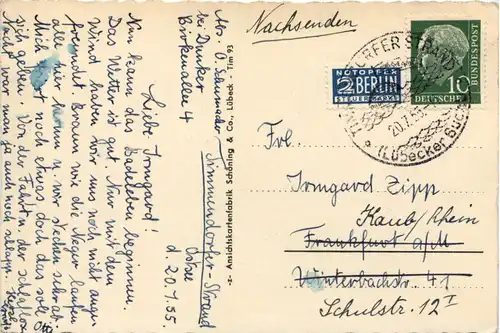 Nachsenden
Abs. O. Schumacher
bei Dunker
Birkenallee 4
Timmendorfer-Strand
Ostsee
d. 20.7.55
Liebe Irmgard!
Nun kann das Badeleben beginnen.
Das Wetter ist gut. Nur mit dem
Wind haben wir uns noch nicht ange-
freundet. Braun wie die Neger laufen
alle hier herum u. wir stechen sehr ab.
Mich wird noch etwas doch das soll
sich geben. Von der Fahrt in der schlaflosen
Nacht war man ja auch noch schlapp.
Otto
-z- Ansichtskartenfabrik Schöning & Co., Lübeck - Tim 93
NOTOPFER
2 BERLIN
STEUERMARKE
10
DEUTSCHE BUNDESPOST
DORFER STRAND
20.7.55
(Lübecker Bucht)
Frl.
Irmgard Zipp
Kaub/Rhein
Frankfurt a/M
Winterbachstr. 41
Schulstr. 12 I